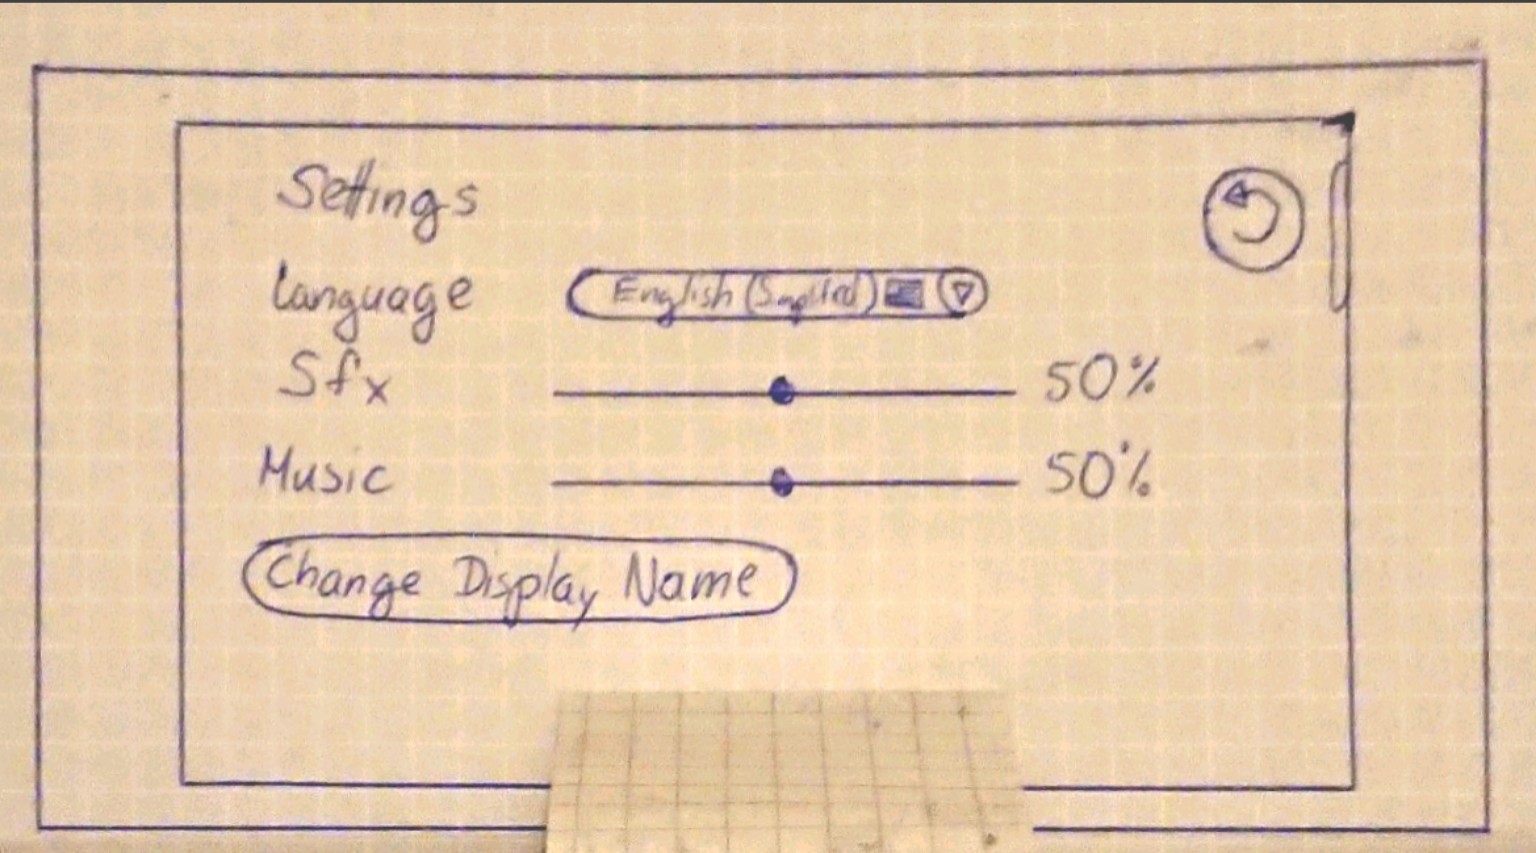 Settings
Language English
Sfx 50%
Music 50%
Change Display Name